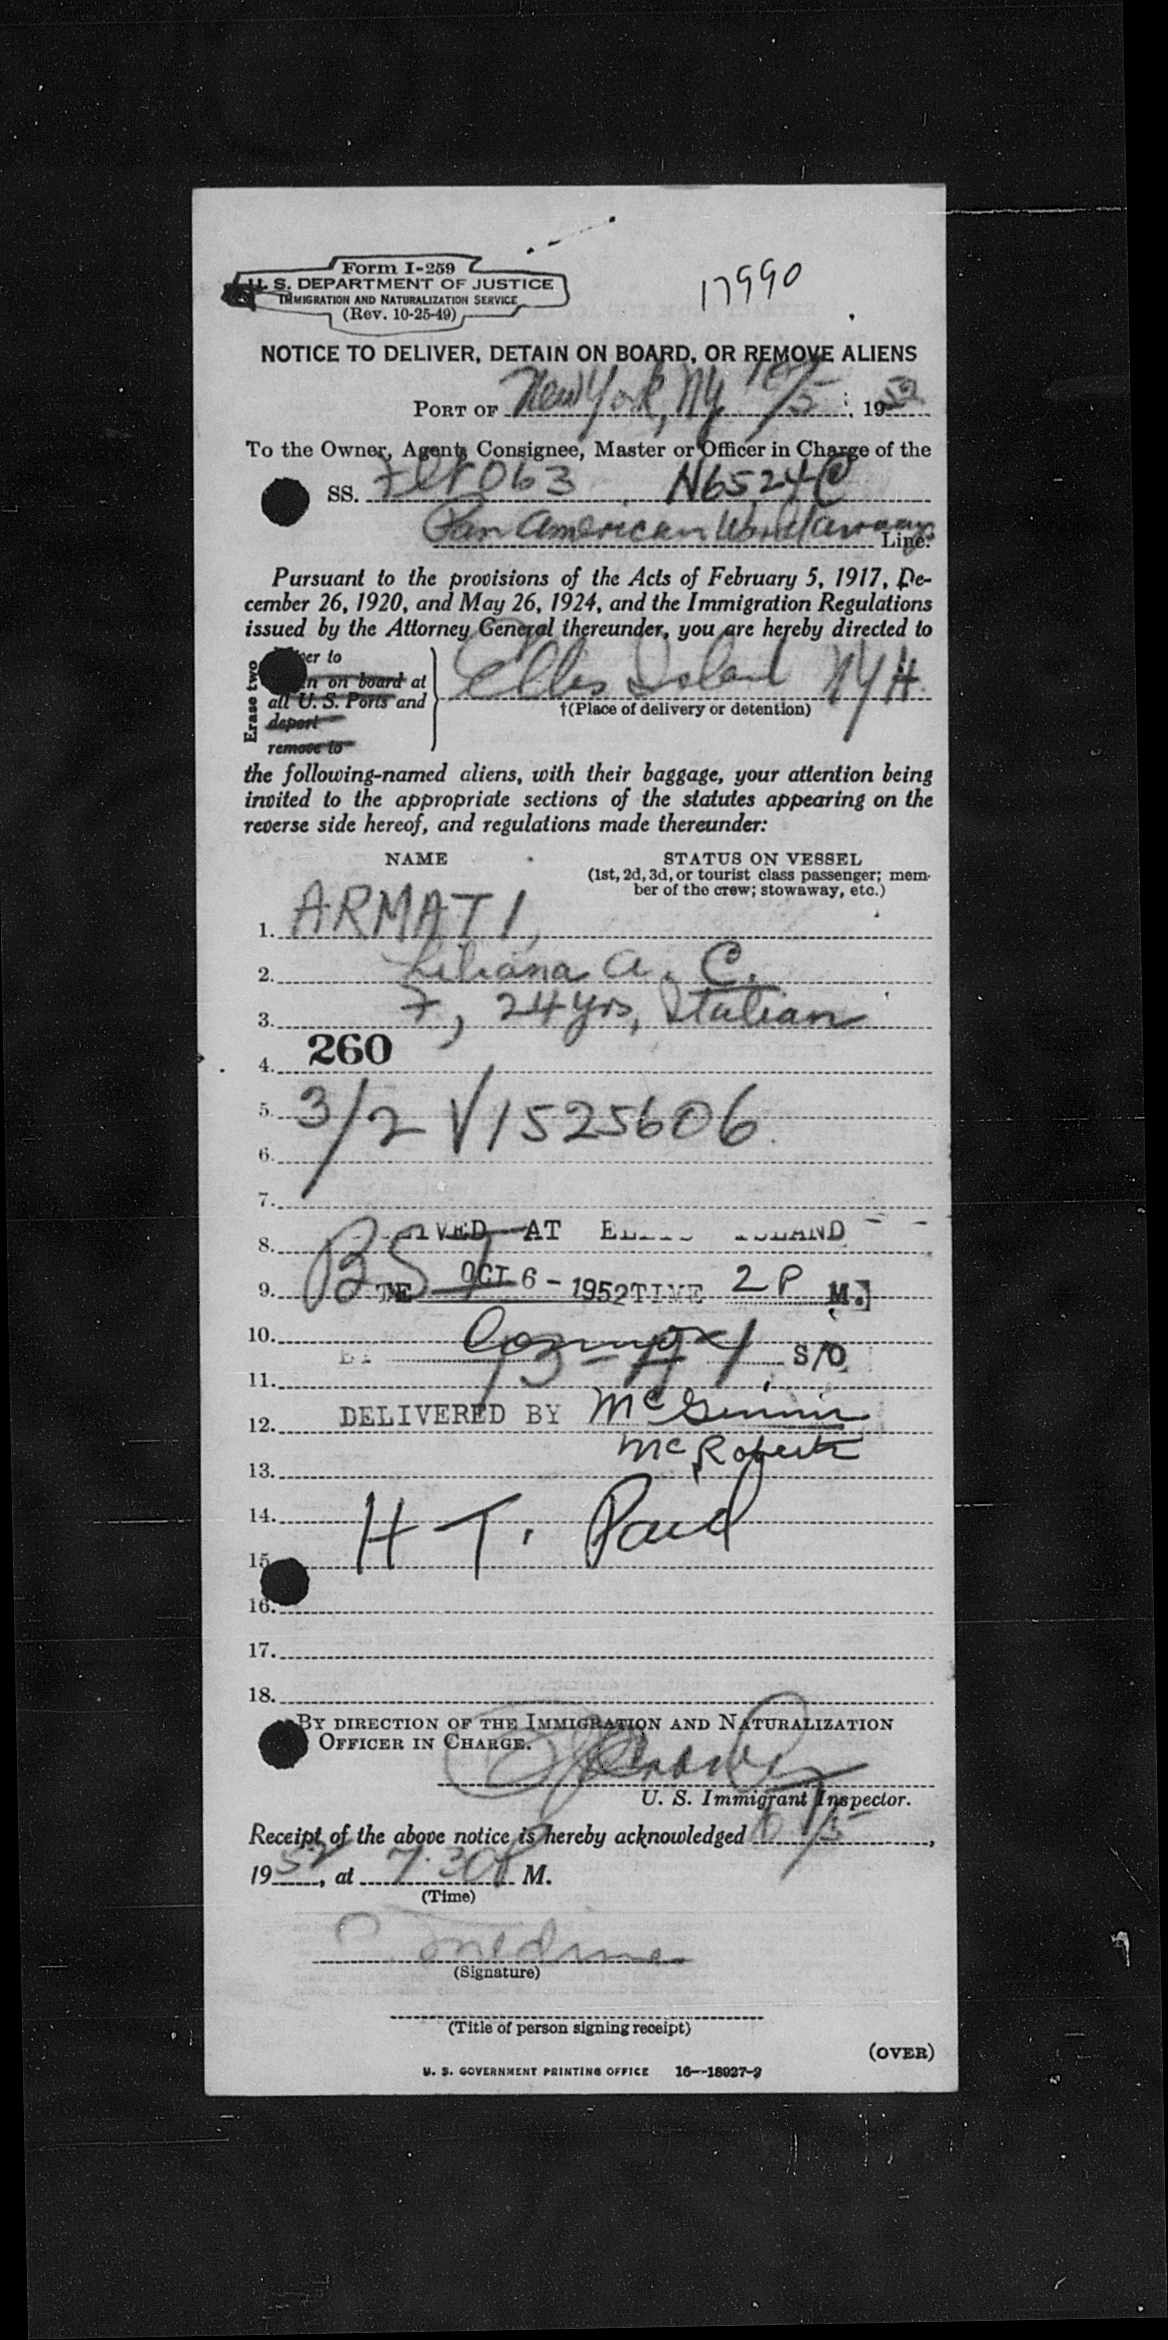 Form I-259
U. S. DEPARTMENT OF JUSTICE
IMMIGRATION AND NATURALIZATION SERVICE
(Rev. 10-25-49)
17990
NOTICE TO DELIVER, DETAIN ON BOARD, OR REMOVE ALIENS
PORT OF New York, NY 10/5, 1952
To the Owner, Agent, Consignee, Master or Officer in Charge of the
SS. Flt 063 N6524C
Pan American World Airways Line.
Pursuant to the provisions of the Acts of February 5, 1917, De-
cember 26, 1920, and May 26, 1924, and the Immigration Regulations
issued by the Attorney General thereunder, you are hereby directed to
Erase two
er to
n on board at
all U. S. Ports and
deport
remove to
Ellis Island NYH
†(Place of delivery or detention)
the following-named aliens, with their baggage, your attention being
invited to the appropriate sections of the statutes appearing on the
reverse side hereof, and regulations made thereunder:
NAME STATUS ON VESSEL
(1st, 2d, 3d, or tourist class passenger; mem-
ber of the crew; stowaway, etc.)
1. ARMATI,
2. Liliana A. C.
3. F, 24 yrs, Italian
4. 260
5. 3/2 V1525606
6.
7.
8. IVED AT ELLIS ISLAND
9. BSI TE OCT 6 - 1952 TIME 2 P M.
10.
S/O
11.
12. DELIVERED BY McGinnis
McRoberts
13.
14. H T. Paid
15.
16.
17.
18.
BY DIRECTION OF THE IMMIGRATION AND NATURALIZATION
OFFICER IN CHARGE.
U. S. Immigrant Inspector.
Receipt of the above notice is hereby acknowledged 10/5,
1952, at 7:30P M.
(Time)
(Signature)
(Title of person signing receipt)
(OVER)
U. S. GOVERNMENT PRINTING OFFICE 16—18927-2